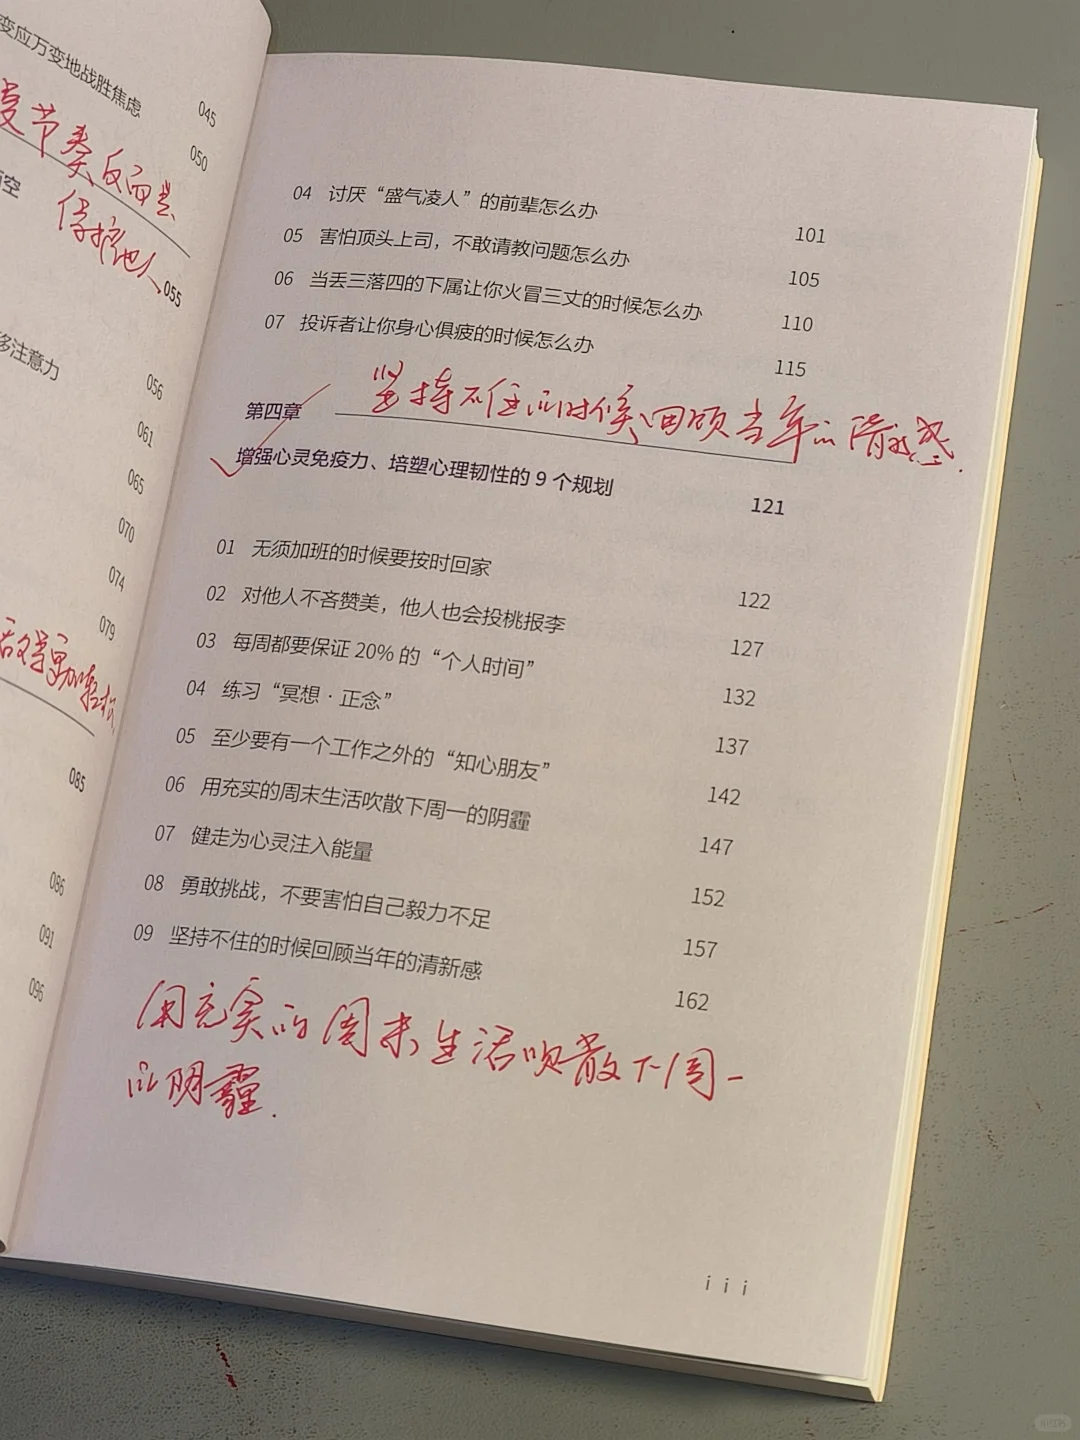 变应万变地战胜焦虑 045
050
055
移注意力 056
061
065
070
074
079
085
086
091
096
04 讨厌“盛气凌人”的前辈怎么办 101
05 害怕顶头上司，不敢请教问题怎么办 105
06 当丢三落四的下属让你火冒三丈的时候怎么办 110
07 投诉者让你身心俱疲的时候怎么办 115
坚持不住的时候，回顾当年的清新感.
第四章
增强心灵免疫力、培塑心理韧性的 9 个规划 121
01 无须加班的时候要按时回家 122
02 对他人不吝赞美，他人也会投桃报李 127
03 每周都要保证 20% 的“个人时间” 132
04 练习“冥想·正念” 137
05 至少要有一个工作之外的“知心朋友” 142
06 用充实的周末生活吹散下周一的阴霾 147
07 健走为心灵注入能量 152
08 勇敢挑战，不要害怕自己毅力不足 157
09 坚持不住的时候回顾当年的清新感 162
用充实的周末生活吹散下周一
的阴霾.
iii